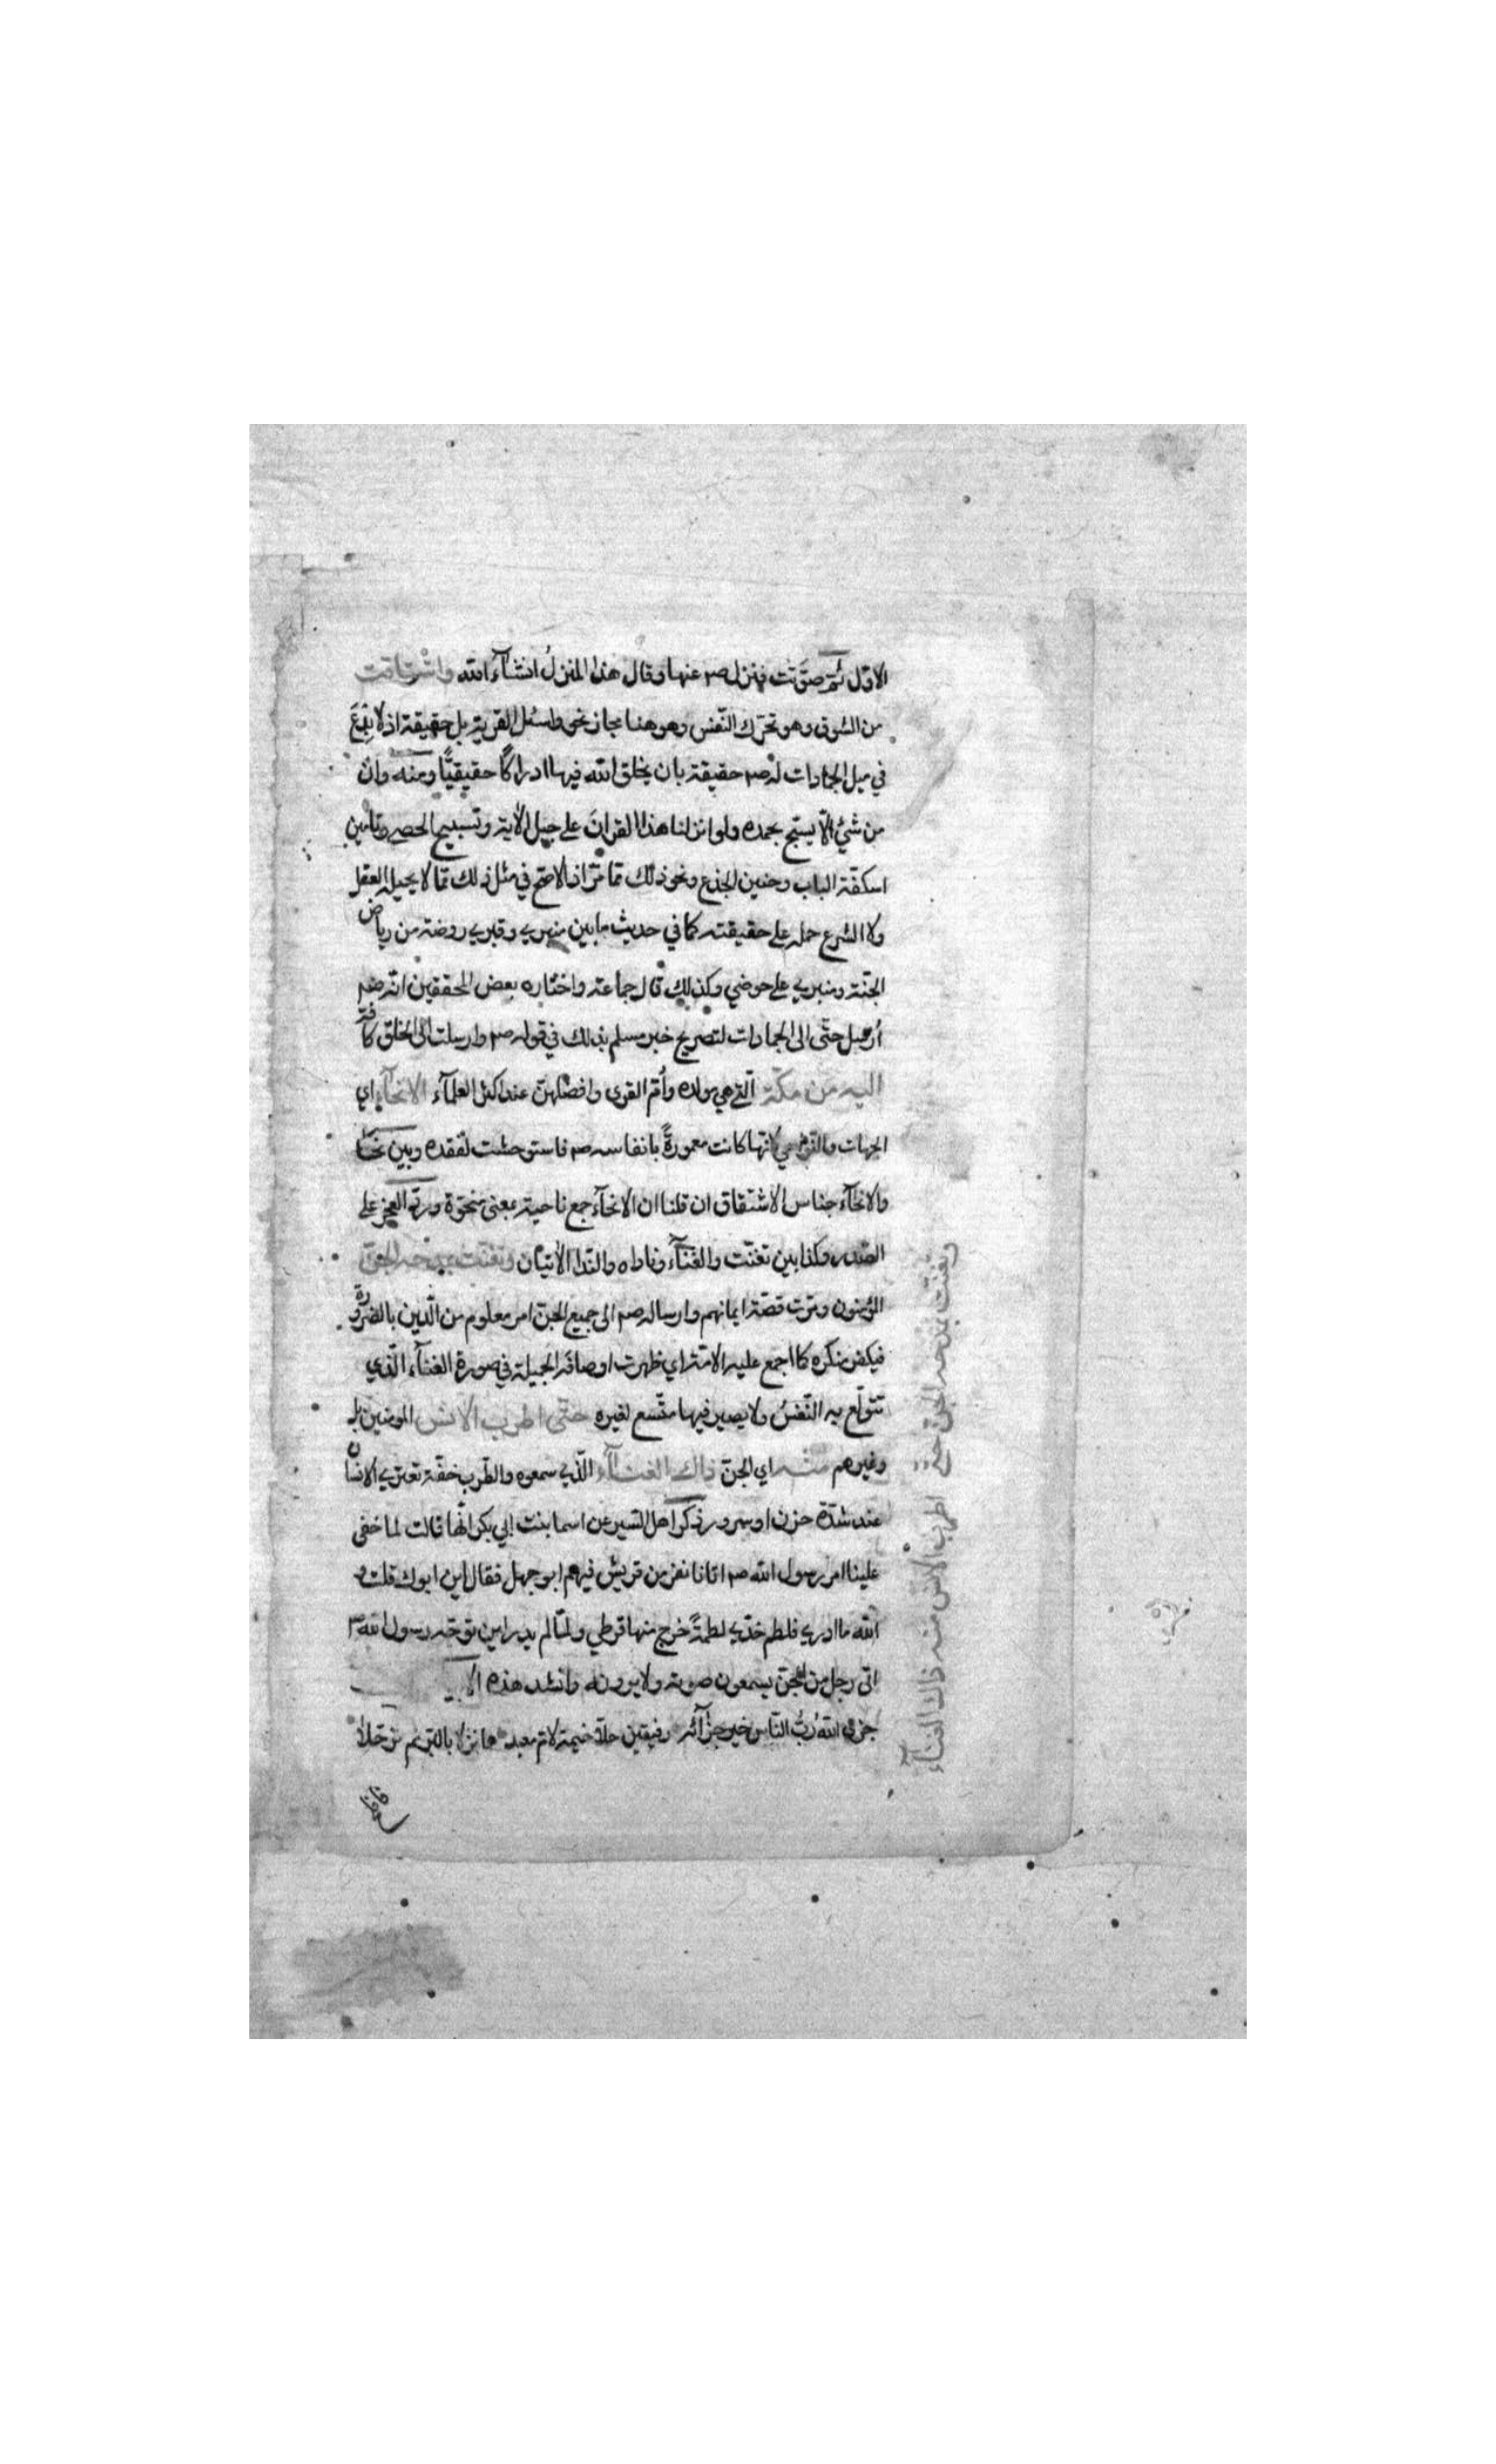 الاوّل ثم صوّتت فنزل صم عنها وقال هذا المنزلُ انشآء الله واشتاقت
من الشوق وهو تحرّك النّفس وهو هنا مجاز نحو واسئل القرية بل حقيقة اذ لا بِدْعَ
في ميل الجمادات له صم حقيقة بان يخلق الله فيها ادراكًا حقيقيًّا ومنه وان
من شئ الّا يسبّح بحمده ولو انزلنا هذا القرانَ على جبل الاية وتسبيح الحصى وتامين
اسكفّة الباب وحنين الجذع ونحو ذلك ممّا مرّ اذ الاصح في مثل ذلك ممّا لا يحيله العقل
ولا الشرع حمله على حقيقته كما في حديث ما بين منبري وقبري روضة من رياض
الجنّة ومنبري على حوضي وكذلك قال جماعة واختاره بعض المحققين انّه صم
أرسل حتّى الى الجمادات لتصريح خبر مسلم بذلك في قوله صم وارسلت الى الخلق كافّة
اليه من مكّة الّتي هي مولده وأمّ القرى وافضلهنّ عند اكثر العلمآء الانحآء اي
الجهات والنّواحي لانّها كانت معمورةً بانفاسه صم فاستوحشت لفقده وبين نحا
والانحآء جناس الاشتقاق ان قلنا ان الانحآء جمع ناحية بمعنى منحوّة وردّ العجز على
الصّدر وكذا بين تغنّت والغنآء وناداه والنّدا الأتيان وتغنّت بمدحه الجنّ
المؤمنون ومرّت قصّة ايمانهم وارساله صم الى جميع الجنّ امر معلوم من الّدين بالضرورة
فيكفر منكره كما اجمع عليه الامّة اي ظهرت اوصافه الجميلة في صورة الغنآء الّذي
تتولّع به النّفسُ ولا يصير فيها متّسع لغيره حتّى اطرب الانس المومنين به
وغيرهم منه اي الجنّ ذاك الغنآء الّذي سمعوه والطّرب خفّة تعتري الانسان
عند شدّة حزن او سرور ذكر اهل السير عن اسما بنت ابي بكر انّها قالت لما خفى
علينا امر رسول الله صم اتانا نفر من قريش فيهم ابو جهل فقال اين ابوك قلت و
الله ما ادري فلطم خدّي لطمةً خرج منها قرطي ولمّا لم يدر اين توجّه رسول الله صم
اتى رجل من الجنّ يسمعون صوته ولا يرونه وانشد هذه
جزى الله ربُّ النّاس خير جزآئه رفيقين حلّا خيمة لامّ معبد هما نزلا بالبّر ثم ترحّلا
وتغنّت بمدحه الجنّ حتّى اطرب الانس منه ذاك الغنآء